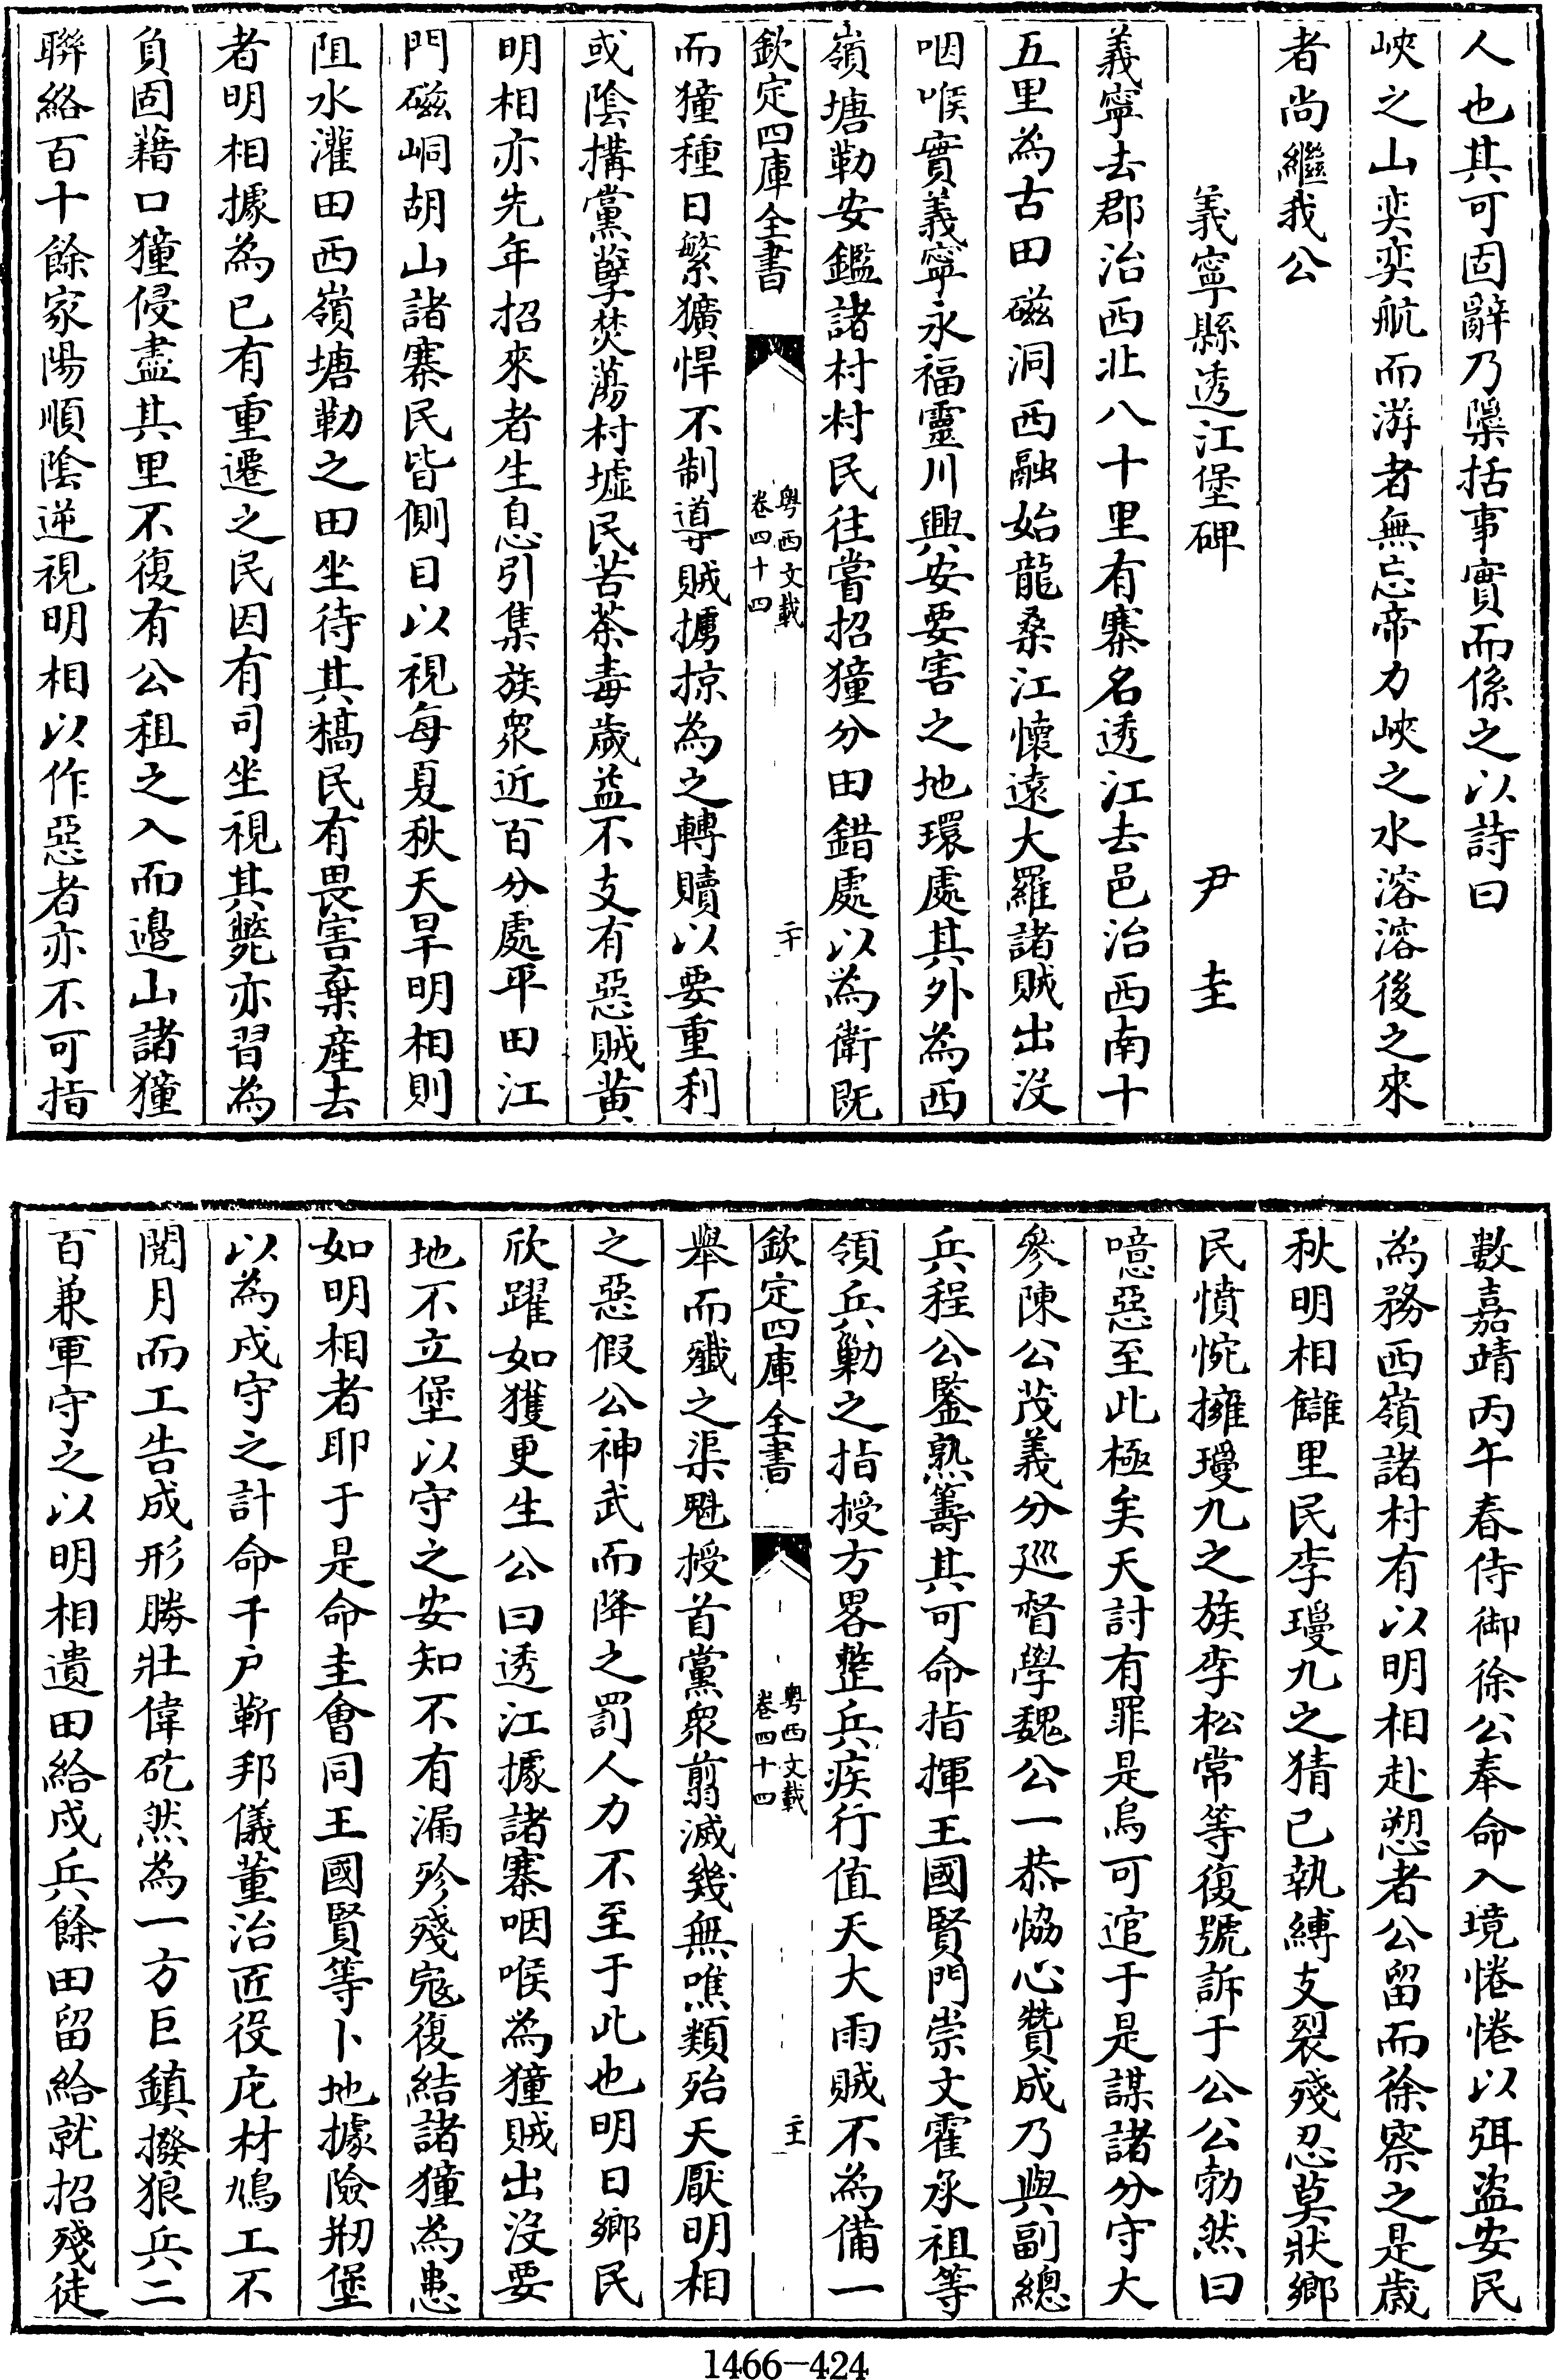 人也其可固辭乃檃括事實而係之以詩曰
峽之山奕奕航而游者無忘帝力峽之水溶溶後之來
者尚繼我公
義寧縣透江堡碑 尹圭
義寧去郡治西北八十里有寨名透江去邑治西南十
五里為古田磁洞西融始龍桑江懷遠大羅諸賊出沒
咽喉實義寧永福靈川興安要害之地環處其外為西
嶺塘勒安鑑諸村村民往嘗招獞分田錯處以為衛既
欽定四庫全書
粤西文載
卷四十四
二十
而獞種日繁獷悍不制導賊擄掠為之轉贖以要重利
或陰搆黨孽焚蕩村墟民苦荼毒歲益不支有惡賊黄
明相亦先年招來者生息引集族衆近百分處平田江
門磁峒胡山諸寨民皆側目以視每夏秋天旱明相則
阻水灌田西嶺塘勒之田坐待其槁民有畏害棄產去
者明相據為已有重遷之民因有司坐視其斃亦習為
負固藉口獞侵盡其里不復有公租之入而邉山諸獞
聯絡百十餘家陽順陰逆視明相以作惡者亦不可指
數嘉靖丙午春侍御徐公奉命入境惓惓以弭盜安民
為務西嶺諸村有以明相赴愬者公留而徐察之是歲
秋明相讎里民李璦九之猜已執縛支裂殘忍莫狀鄉
民憤惋擁璦九之族李松常等復號訴于公公勃然曰
噫惡至此極矣天討有罪是烏可逭于是謀諸分守大
參陳公茂義分廵督學魏公一恭恊心贊成乃與副總
兵程公鋻熟籌其可命指揮王國賢門崇文霍承祖等
領兵勦之指授方畧整兵疾行值天大雨賊不為備一
欽定四庫全書
粤西文載
卷四十四
二十一
舉而殲之渠魁授首黨衆翦滅幾無噍類殆天厭明相
之惡假公神武而降之罰人力不至于此也明日鄉民
欣躍如獲更生公曰透江據諸寨咽喉為獞賊出沒要
地不立堡以守之安知不有漏殄殘寇復結諸獞為患
如明相者耶于是命圭會同王國賢等卜地據險剏堡
以為戍守之計命千户蘄邦儀董治匠役庀材鳩工不
閲月而工告成形勝壯偉矻然為一方巨鎮撥狼兵二
百兼軍守之以明相遺田給戍兵餘田留給就招殘徒
1466-424